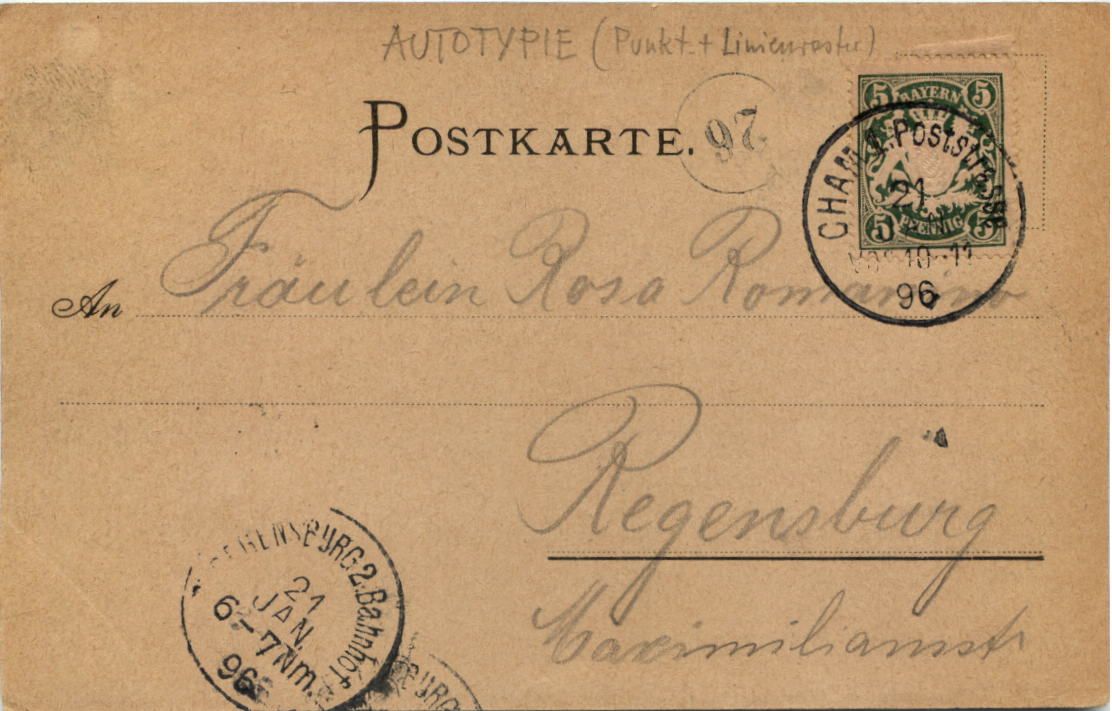 AUTOTYPIE (Punkt- + Linienraster)
POSTKARTE.
97
5 BAYERN 5
5 PFENNIG 5
CHAM 1. Poststrasse
21
10-11
96
An Fräulein Rosa
Regensburg
Maximilianstr
REGENSBURG 2. Bahnhof.
21
JAN.
6-7 Nm.
96
BURG